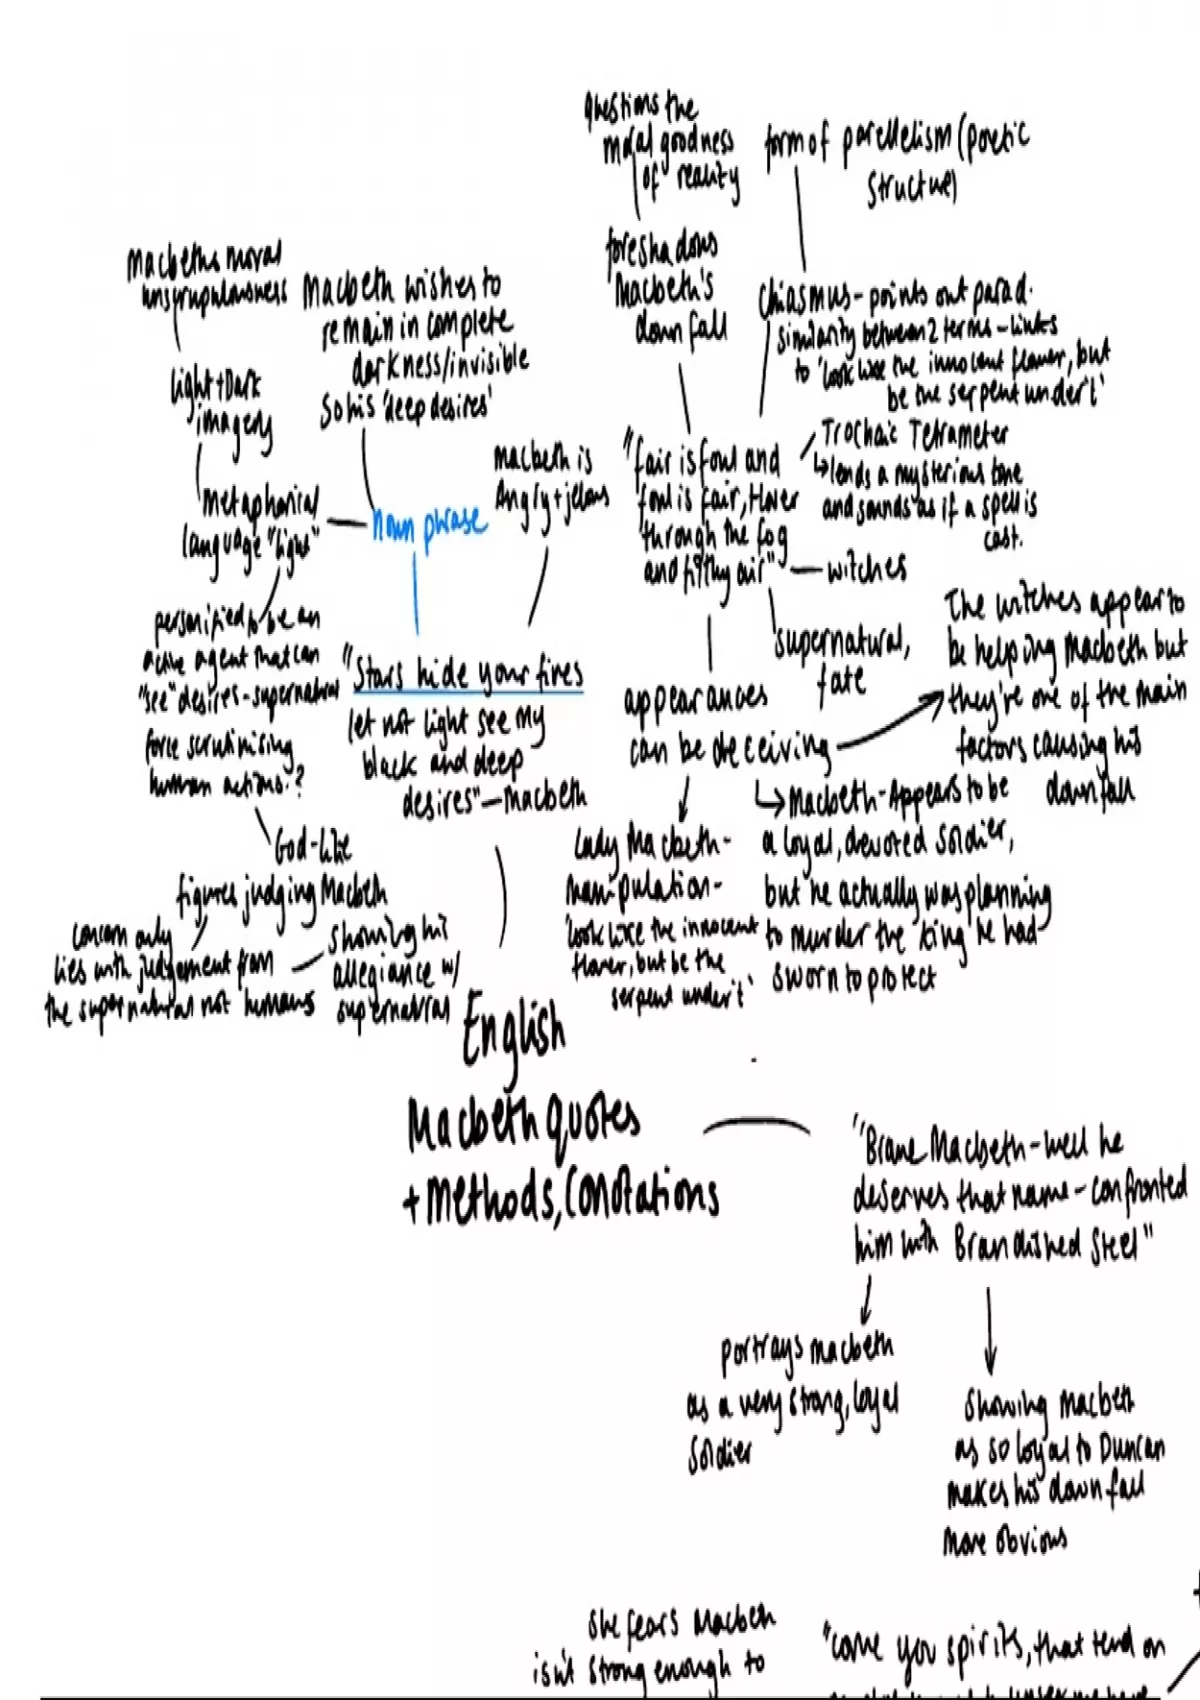 questions the
moral goodness
of reality
form of parellelism (poetic
structure)
foreshadows
Macbeth's
downfall
Chiasmus - points out parad.
similarity between 2 terms - links
to 'look like the innocent flower, but
be the serpent under't'
Macbeths moral
unscrupulousness
Macbeth wishes to
remain in complete
darkness/invisible
so his 'deep desires'
light + Dark
imagery
metaphorial
language "light"
noun phrase
macbeth is
angry + jelous
"fair is foul and
foul is fair, Hover
through the fog
and filthy air"
witches
Trochaic Tetrameter
lends a mysterious tone
and sounds as if a spell is
cast.
supernatural,
fate
personified to be an
active agent that can
"see" desires - supernatural
force scrutinising
human actions?
"Stars hide your fires
let not light see my
black and deep
desires" - Macbeth
appearances
can be deceiving
The witches appear to
be helping Macbeth but
they're one of the main
factors causing his
downfall
God-like
figures judging Macbeth
concern only
lies with judgement from
the supernatural not humans
showing his
allegiance w/
supernatural
Lady Macbeth -
manipulation -
'look like the innocent
flower, but be the
serpent under't'
Macbeth - Appears to be
a loyal, devoted soldier,
but he actually was planning
to murder the king he had
sworn to protect
English
Macbeth quotes
+ Methods, Conotations
"Brave Macbeth - well he
deserves that name - confronted
him with Brandished steel"
portrays macbeth
as a very strong, loyal
soldier
showing Macbeth
as so loyal to Duncan
makes his downfall
more obvious
she fears Macbeth
isn't strong enough to
"come you spirits, that tend on